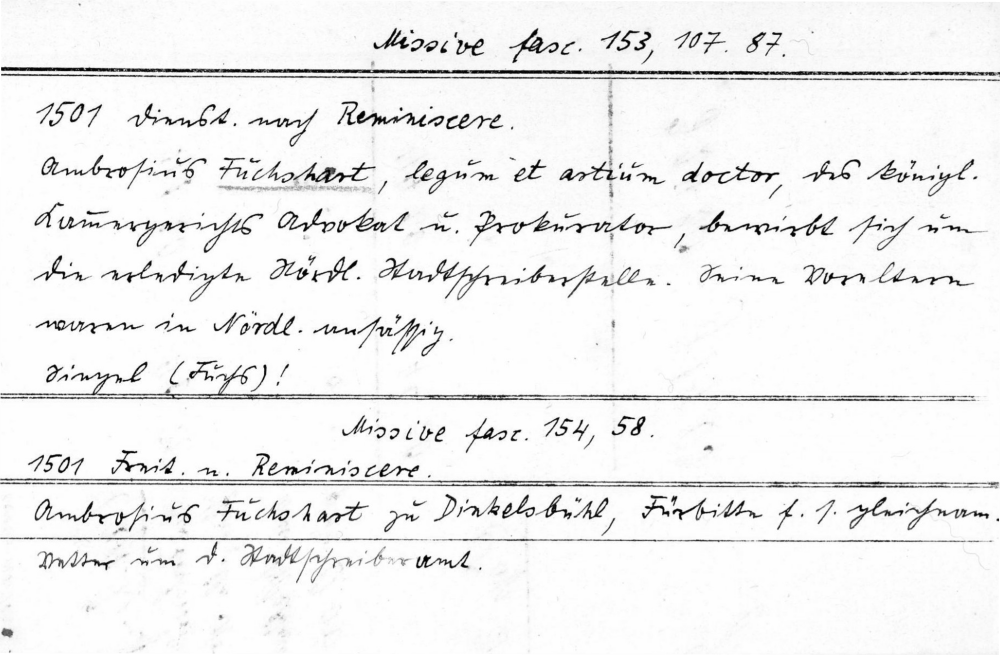 Missive fasc. 153, 107. 87.
1501 Dienst. nach Reminiscere.
Ambrosius Fuchshart, legum et artium doctor, des königl.
Kam̅ergerichts Advokat u. Prokurator, bewirbt sich um
die erledigte Nördl. Stadtschreiberstelle. Seine Voreltern
waren in Nördl. ansässig.
Siegel (Fuchs)!
Missive fasc. 154, 58.
1501 Freit. n. Reminiscere.
Ambrosius Fuchshart zu Dinkelsbühl, Fürbitte f. s. gleichnam.
Vetter um d. Stadtschreiberamt.